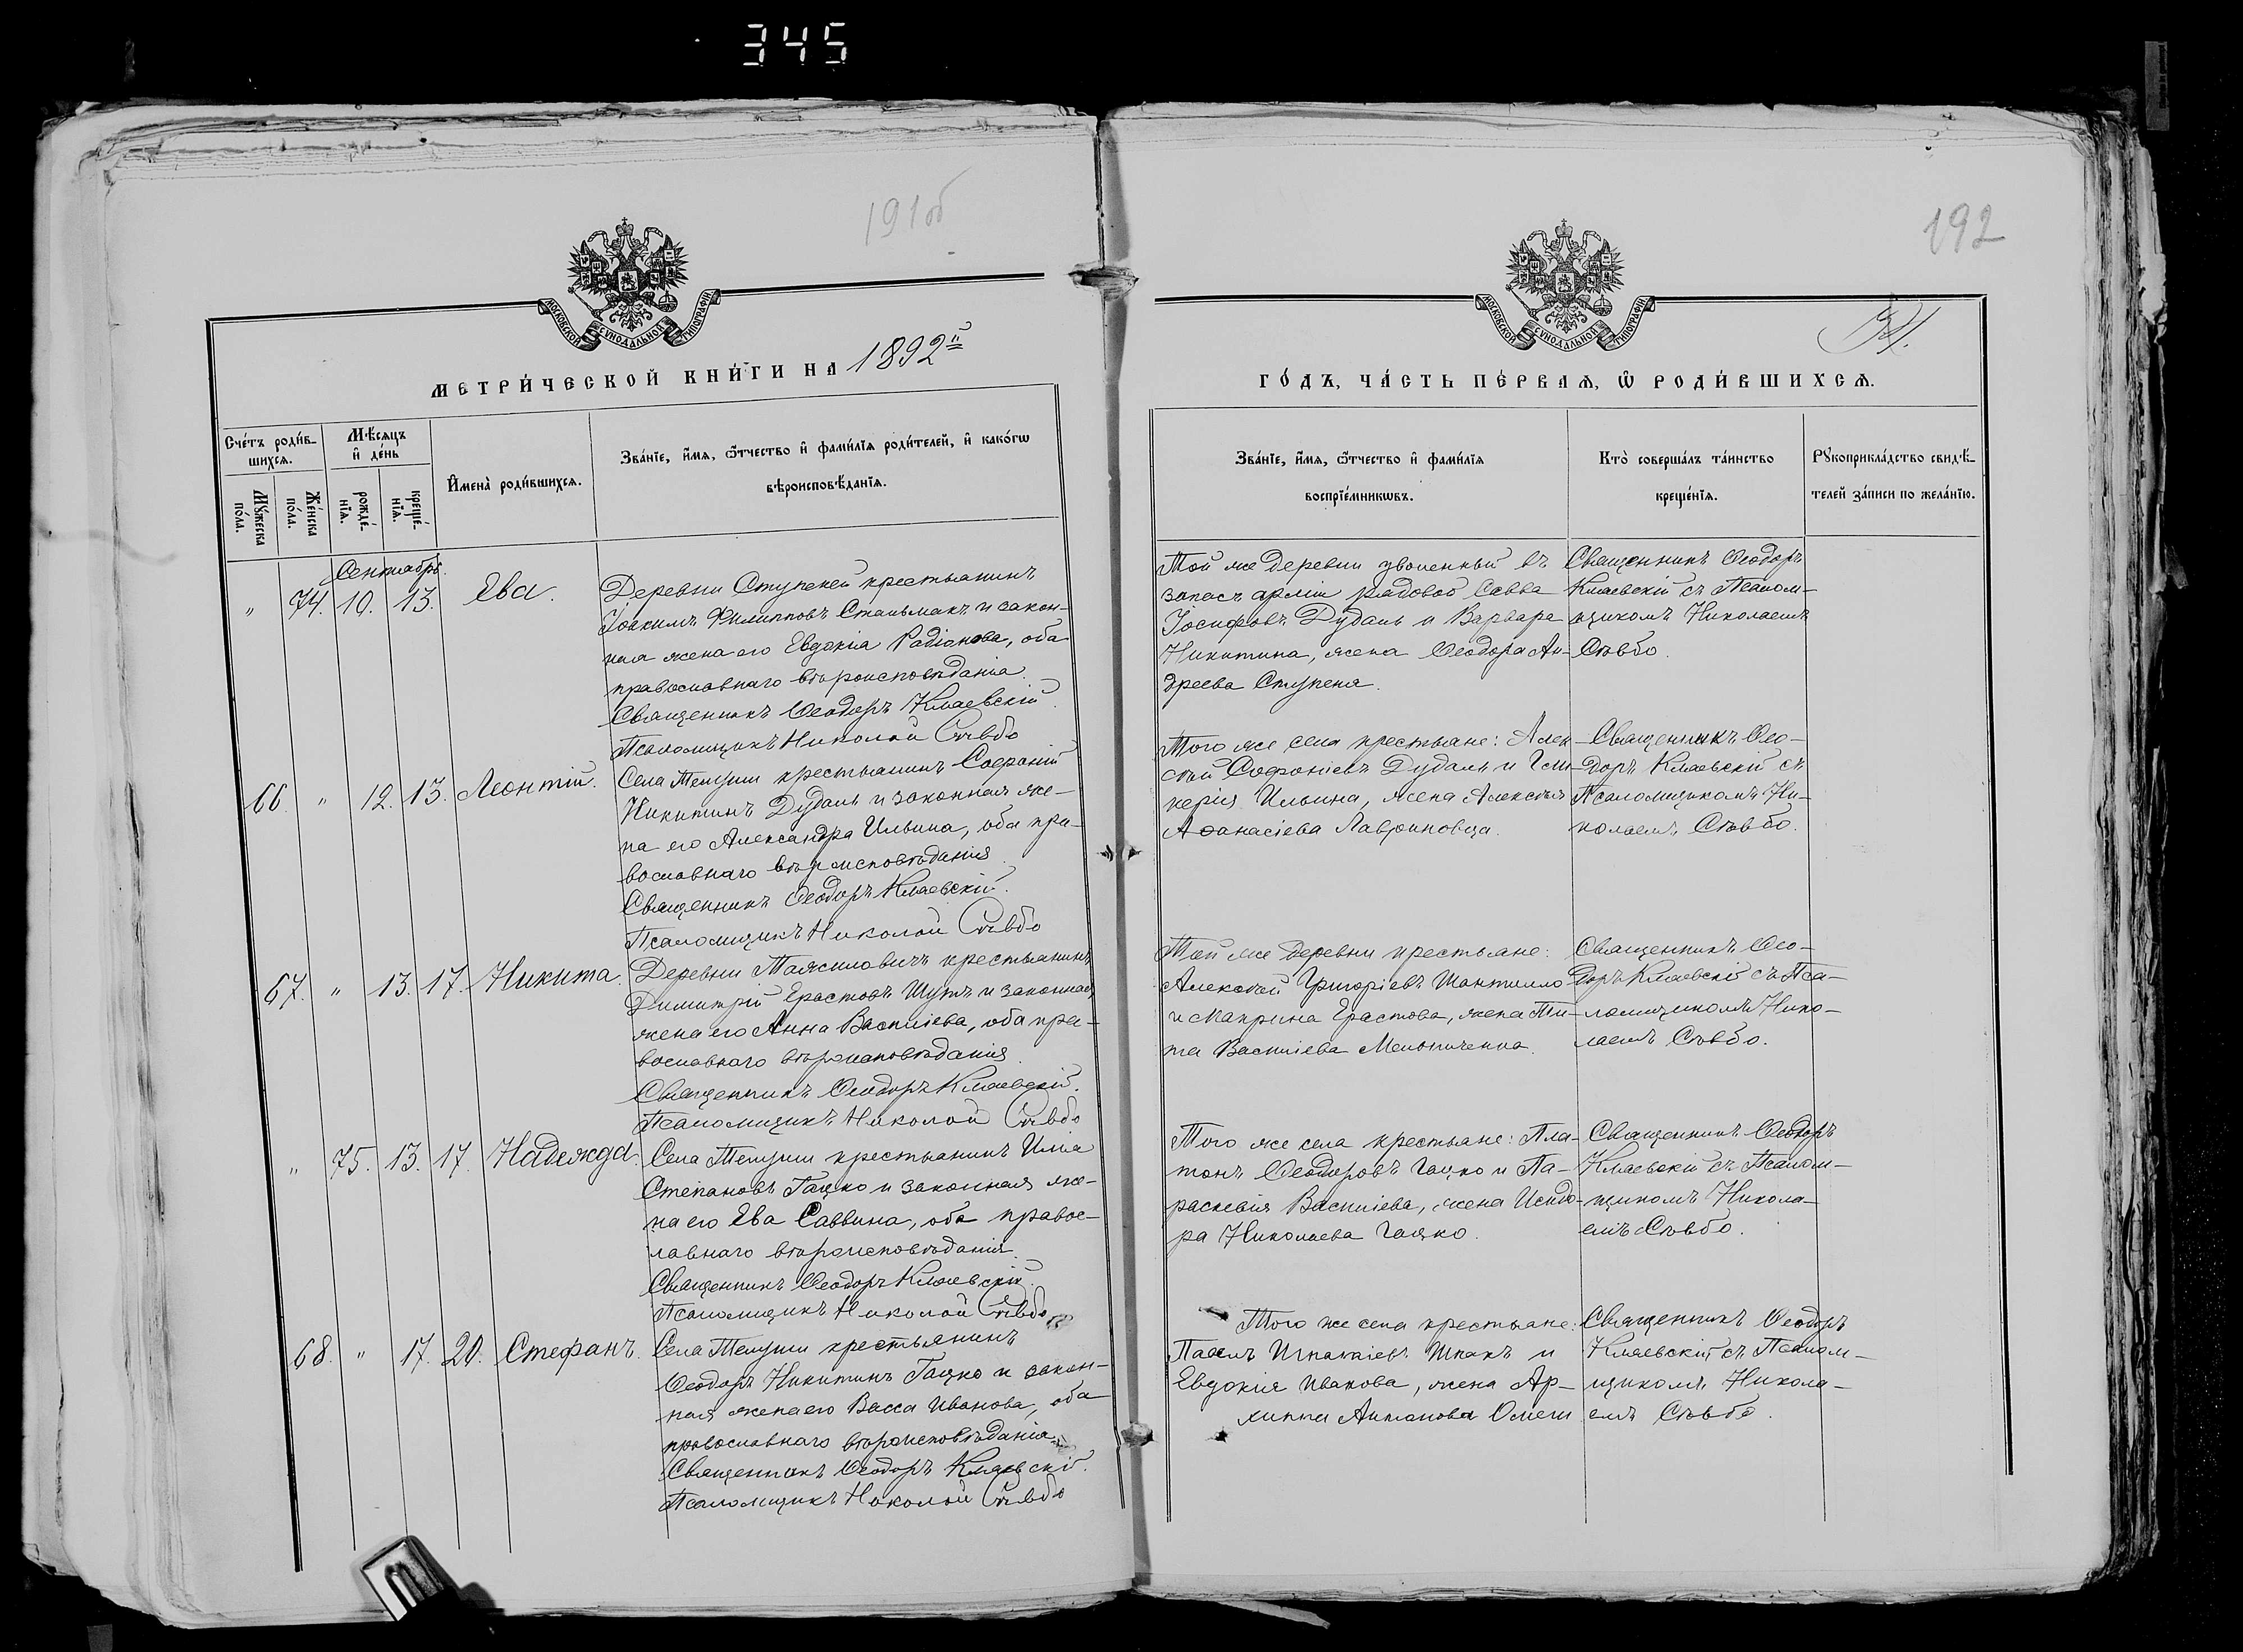 345
191об
192
МОСКОВСКОЙ СѴНОДАЛЬНОЙ ТИПОГРАФІИ
МОСКОВСКОЙ СѴНОДАЛЬНОЙ ТИПОГРАФІИ
МЕТРИ́ЧЕСКОЙ КНИ́ГИ НА 1892й
ГО́ДЪ, ЧА́СТЬ ПЕ́РВАѦ, Ѡ РОДИ́ВШИХСѦ.
Сче́тъ роди́в-
шихсѧ.
Мѣ́сѧцъ
и҆ де́нь
Мꙋ́жеска
по́ла.
Же́нска
по́ла.
рожде́-
нїѧ.
креще́-
нїѧ.
И҆мена̀ роди́вшихсѧ.
Зва́нїе, и҆́мѧ, ѻ҆́тчество и҆ фами́лїѧ роди́телей, и҆ како́гѡ
вѣроисповѣ́данїѧ.
Зва́нїе, и҆́мѧ, ѻ҆́тчество и҆ фами́лїѧ
воспрїе́мникѡвъ.
Кто̀ соверша́лъ та́инство
креще́нїѧ.
Рꙋкоприкла́дство свидѣ́-
телей за́писи по жела́нїю.
Сентябрь.
" 74. 10. 13. Ева.
Деревни Ступеней крестьянинъ
Іоакимъ Филипповъ Стальмакъ и закон-
ная жена его Евдокія Радіонова, оба
православнаго вѣроисповѣданія.
Священникъ Ѳеодоръ Кмаевскій.
Псаломщикъ Николай Сѣвбо
Той же деревни уволенный въ
запасъ арміи рядовой Савва
Іосифовъ Дудаль и Варвара
Никитина, жена Ѳеодора Ан-
дреева Ступеня.
Священникъ Ѳеодоръ
Кмаевскій съ Псалом-
щикомъ Николаемъ
Сѣвбо.
66. " 12. 13. Леонтій.
Села Телуши крестьянинъ Софроній
Никитинъ Дудаль и законная же-
на его Александра Ильина, оба пра-
вославнаго вѣроисповѣданія.
Священникъ Ѳеодоръ Кмаевскій.
Псаломщикъ Николай Сѣвбо
Того же села крестьяне: Алек-
сѣй Софроніевъ Дудаль и Гли-
керія Ильина, жена Алексѣя
Аѳанасіева Лавриновца.
Священникъ Ѳео-
доръ Кмаевскій съ
Псаломщикомъ Ни-
колаемъ Сѣвбо.
67. " 13. 17. Никита.
Деревни Тажиловичъ крестьянинъ
Димитрій Ерастовъ Шутъ и законная
жена его Анна Василіева, оба пра-
вославнаго вѣроисповѣданія.
Священникъ Ѳеодоръ Кмаевскій.
Псаломщикъ Николай Сѣвбо
Той же деревни крестьяне:
Алексѣй Григоріевъ Шантилло
и Макрина Ерастова, жена Ти-
та Василіева Мельниченка.
Священникъ Ѳео-
доръ Кмаевскій съ Пса-
ломщикомъ Нико-
лаемъ Сѣвбо.
" 75. 13. 17. Надежда.
Села Телуши крестьянинъ Илія
Степановъ Гацко и законная же-
на его Ева Саввина, оба правос-
лавнаго вѣроисповѣданія.
Священникъ Ѳеодоръ Кмаевскій.
Псаломщикъ Николай Сѣвбо
Того же села крестьяне: Пла-
тонъ Ѳеодоровъ Гацко и Па-
раскевія Василіева, жена Исидо-
ра Николаева Гацко.
Священникъ Ѳеодоръ
Кмаевскій съ Псалом-
щикомъ Никола-
емъ Сѣвбо.
68. " 17. 20. Стефанъ.
Села Телуши крестьянинъ
Ѳеодоръ Никитинъ Гацко и закон-
ная жена его Васса Иванова, оба
православнаго вѣроисповѣданія.
Священникъ Ѳеодоръ Кмаевскій.
Псаломщикъ Николай Сѣвбо
Того же села крестьяне:
Павелъ Игнатіевъ Шпакъ и
Евдокія Иванова, жена Ар-
хиппа Антонова
Священникъ Ѳеодоръ
Кмаевскій съ Псалом-
щикомъ Никола-
емъ Сѣвбо.